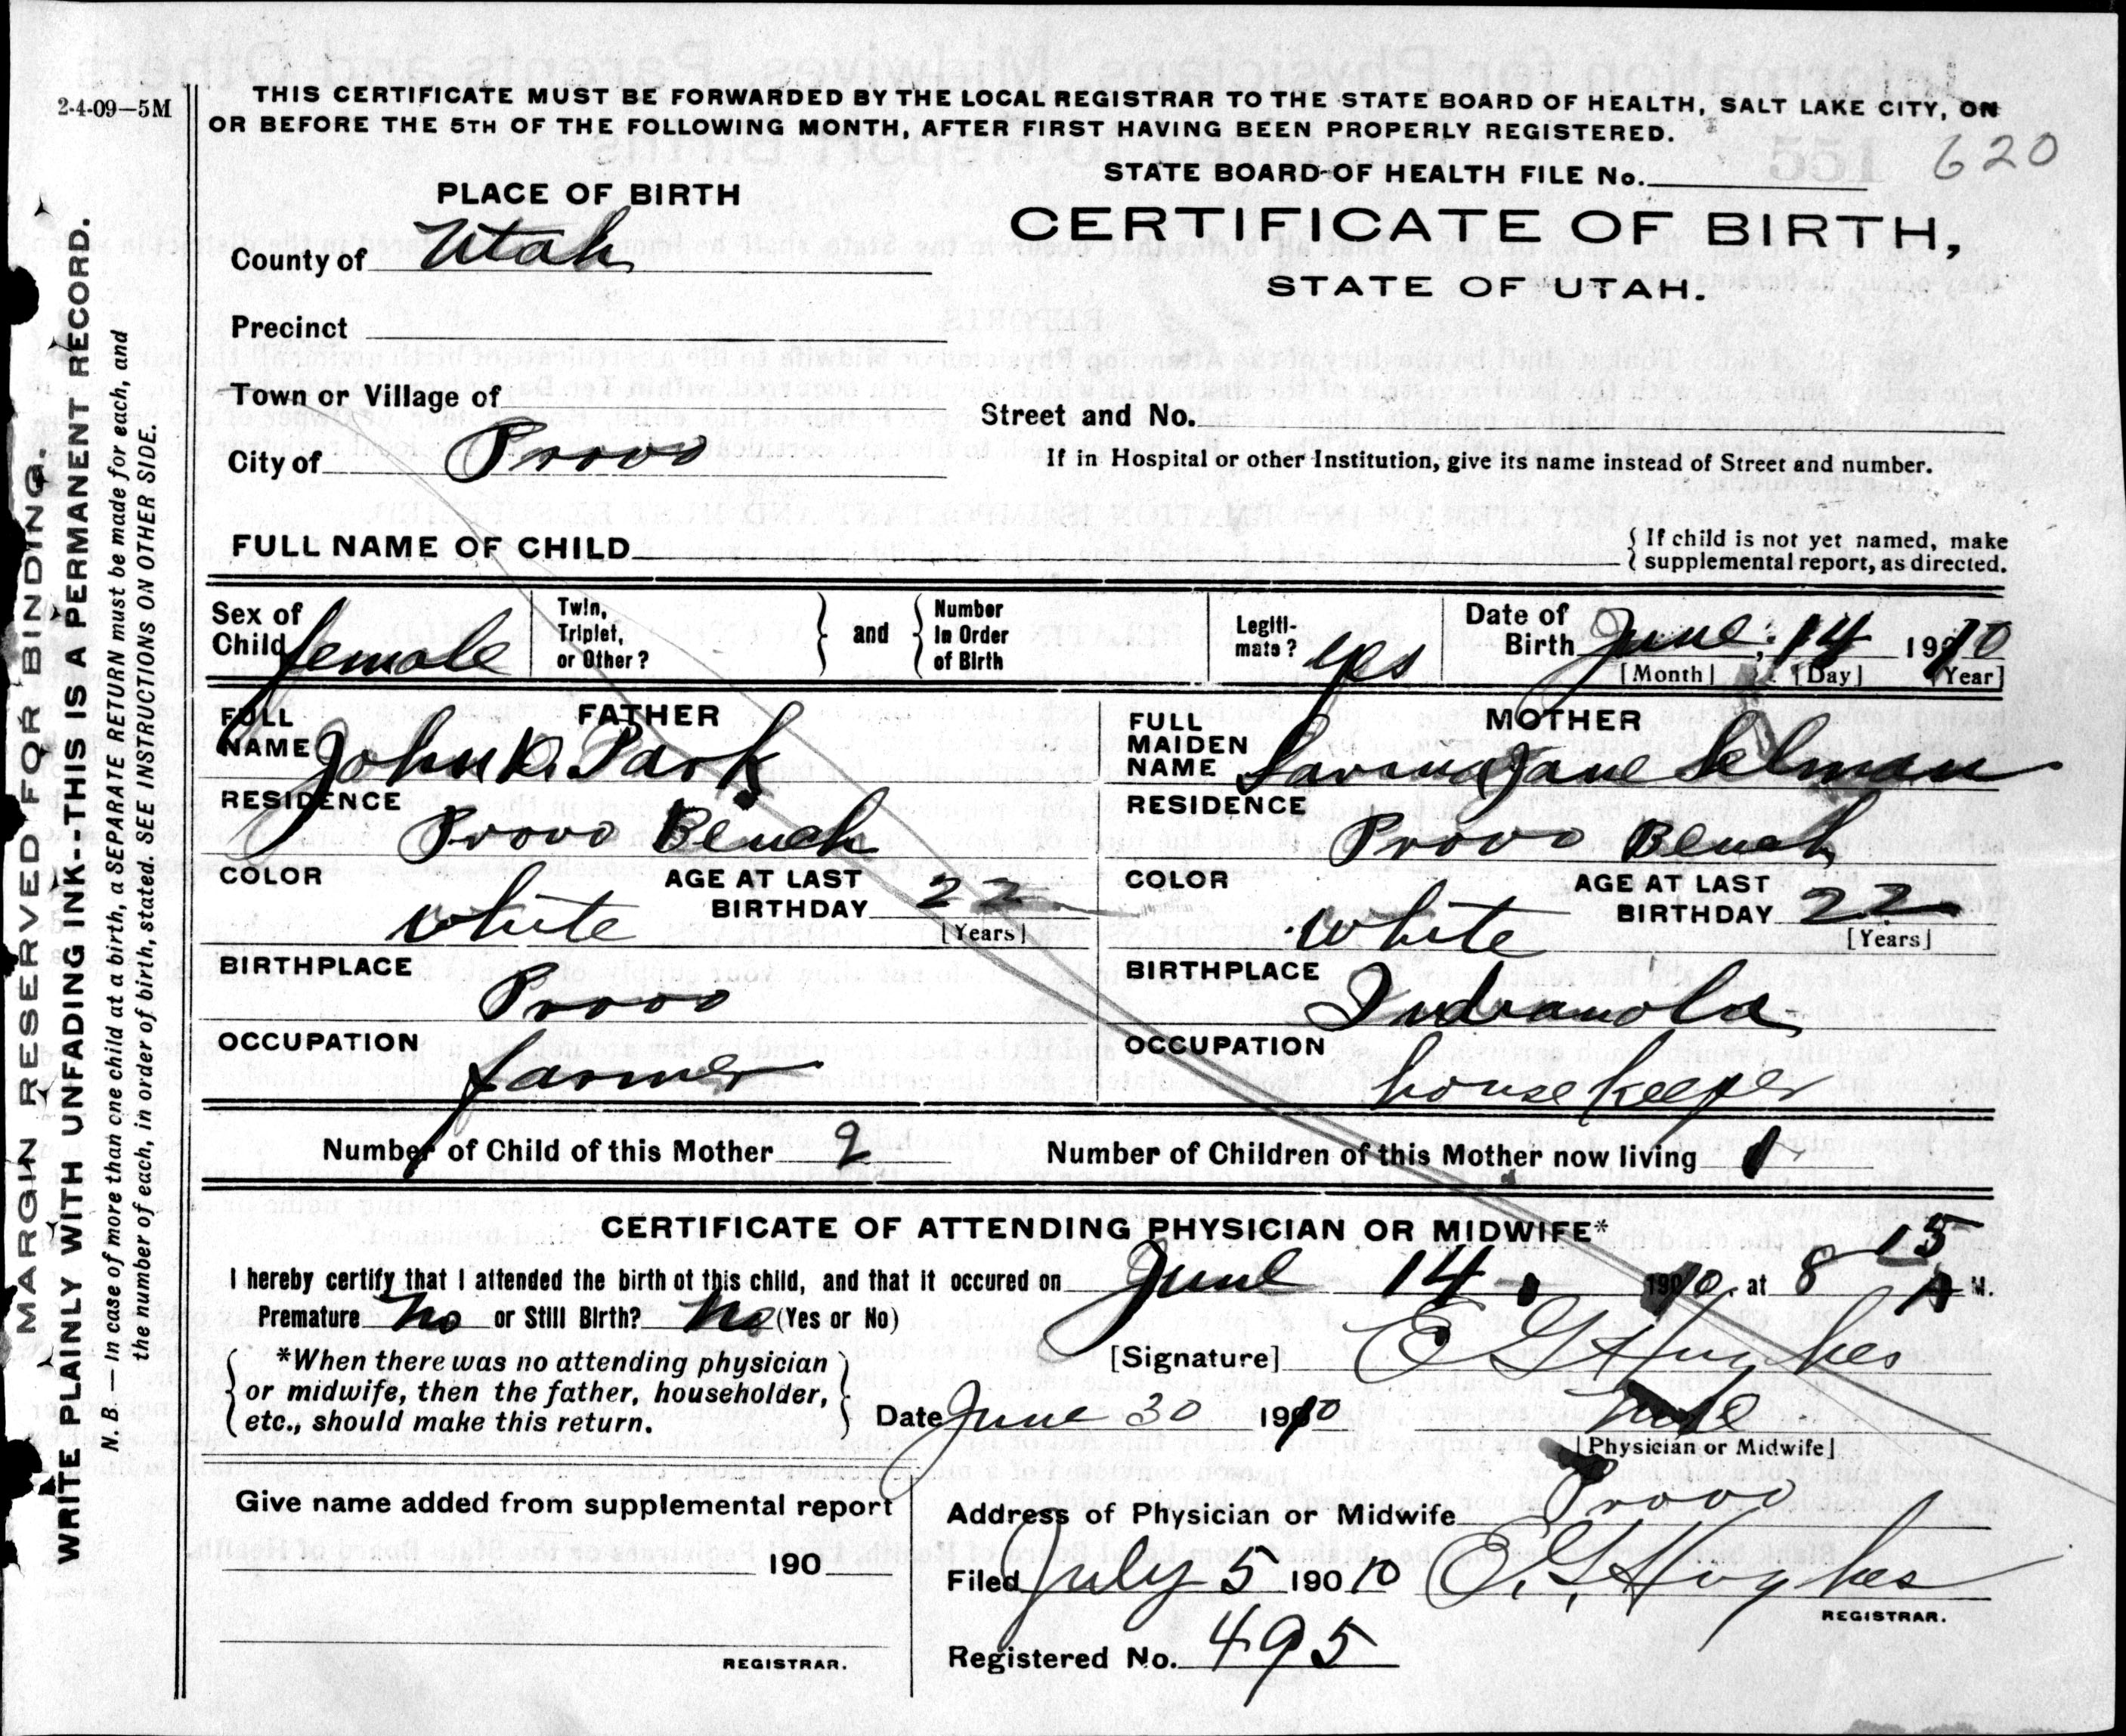 2-4-09—5M
THIS CERTIFICATE MUST BE FORWARDED BY THE LOCAL REGISTRAR TO THE STATE BOARD OF HEALTH, SALT LAKE CITY, ON
OR BEFORE THE 5TH OF THE FOLLOWING MONTH, AFTER FIRST HAVING BEEN PROPERLY REGISTERED.
620
STATE BOARD OF HEALTH FILE No.
PLACE OF BIRTH
CERTIFICATE OF BIRTH,
STATE OF UTAH.
County of Utah
Precinct
Town or Village of
Street and No.
City of Provo
If in Hospital or other Institution, give its name instead of Street and number.
FULL NAME OF CHILD
{ If child is not yet named, make
supplemental report, as directed.
Sex of Child female
Twin, Triplet, or Other?
and
Number In Order of Birth
Legiti- mate? yes
Date of Birth June, 14 1910
[Month] [Day] [Year]
FATHER
FULL NAME John D. Park
MOTHER
FULL MAIDEN NAME Jane Selman
RESIDENCE Provo Bench
RESIDENCE Provo Bench
COLOR white
AGE AT LAST BIRTHDAY 22 [Years]
COLOR white
AGE AT LAST BIRTHDAY 22 [Years]
BIRTHPLACE Provo
BIRTHPLACE Indianola
OCCUPATION farmer
OCCUPATION housekeeper
Number of Child of this Mother 2
Number of Children of this Mother now living 1
CERTIFICATE OF ATTENDING PHYSICIAN OR MIDWIFE*
I hereby certify that I attended the birth of this child, and that it occured on June 14 1910, at 8 15 A M.
Premature No or Still Birth? No (Yes or No)
[Signature] E G Hughes
*When there was no attending physician
or midwife, then the father, householder,
etc., should make this return.
Date June 30 1910
[Physician or Midwife]
Give name added from supplemental report
190
REGISTRAR.
Address of Physician or Midwife Provo
Filed July 5 19010 E. G. Hughes
REGISTRAR.
Registered No. 495
MARGIN RESERVED FOR BINDING.
WRITE PLAINLY WITH UNFADING INK--THIS IS A PERMANENT RECORD.
N. B. — In case of more than one child at a birth, a SEPARATE RETURN must be made for each, and
the number of each, in order of birth, stated. SEE INSTRUCTIONS ON OTHER SIDE.